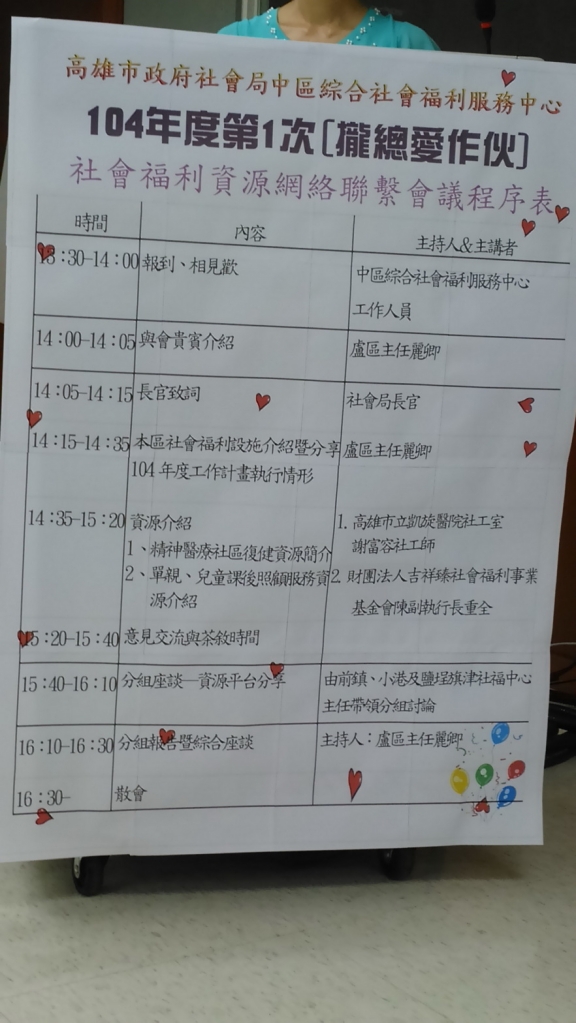 高雄市政府社會局中區綜合社會福利服務中心
104年度第1次〔攏總愛作伙〕
社會福利資源網絡聯繫會議程序表
時間 內容 主持人&主講者
13:30-14:00 報到、相見歡 中區綜合社會福利服務中心
工作人員
14:00-14:05 與會貴賓介紹 盧區主任麗卿
14:05-14:15 長官致詞 社會局長官
14:15-14:35 本區社會福利設施介紹暨分享 盧區主任麗卿
104年度工作計畫執行情形
14:35-15:20 資源介紹 1. 高雄市立凱旋醫院社工室
1、精神醫療社區復健資源簡介 謝富容社工師
2、單親、兒童課後照顧服務資 2. 財團法人吉祥臻社會福利事業
源介紹 基金會陳副執行長重全
15:20-15:40 意見交流與茶敘時間
15:40-16:10 分組座談—資源平台分享 由前鎮、小港及鹽埕旗津社福中心
主任帶領分組討論
16:10-16:30 分組報告暨綜合座談 主持人：盧區主任麗卿
16:30- 散會